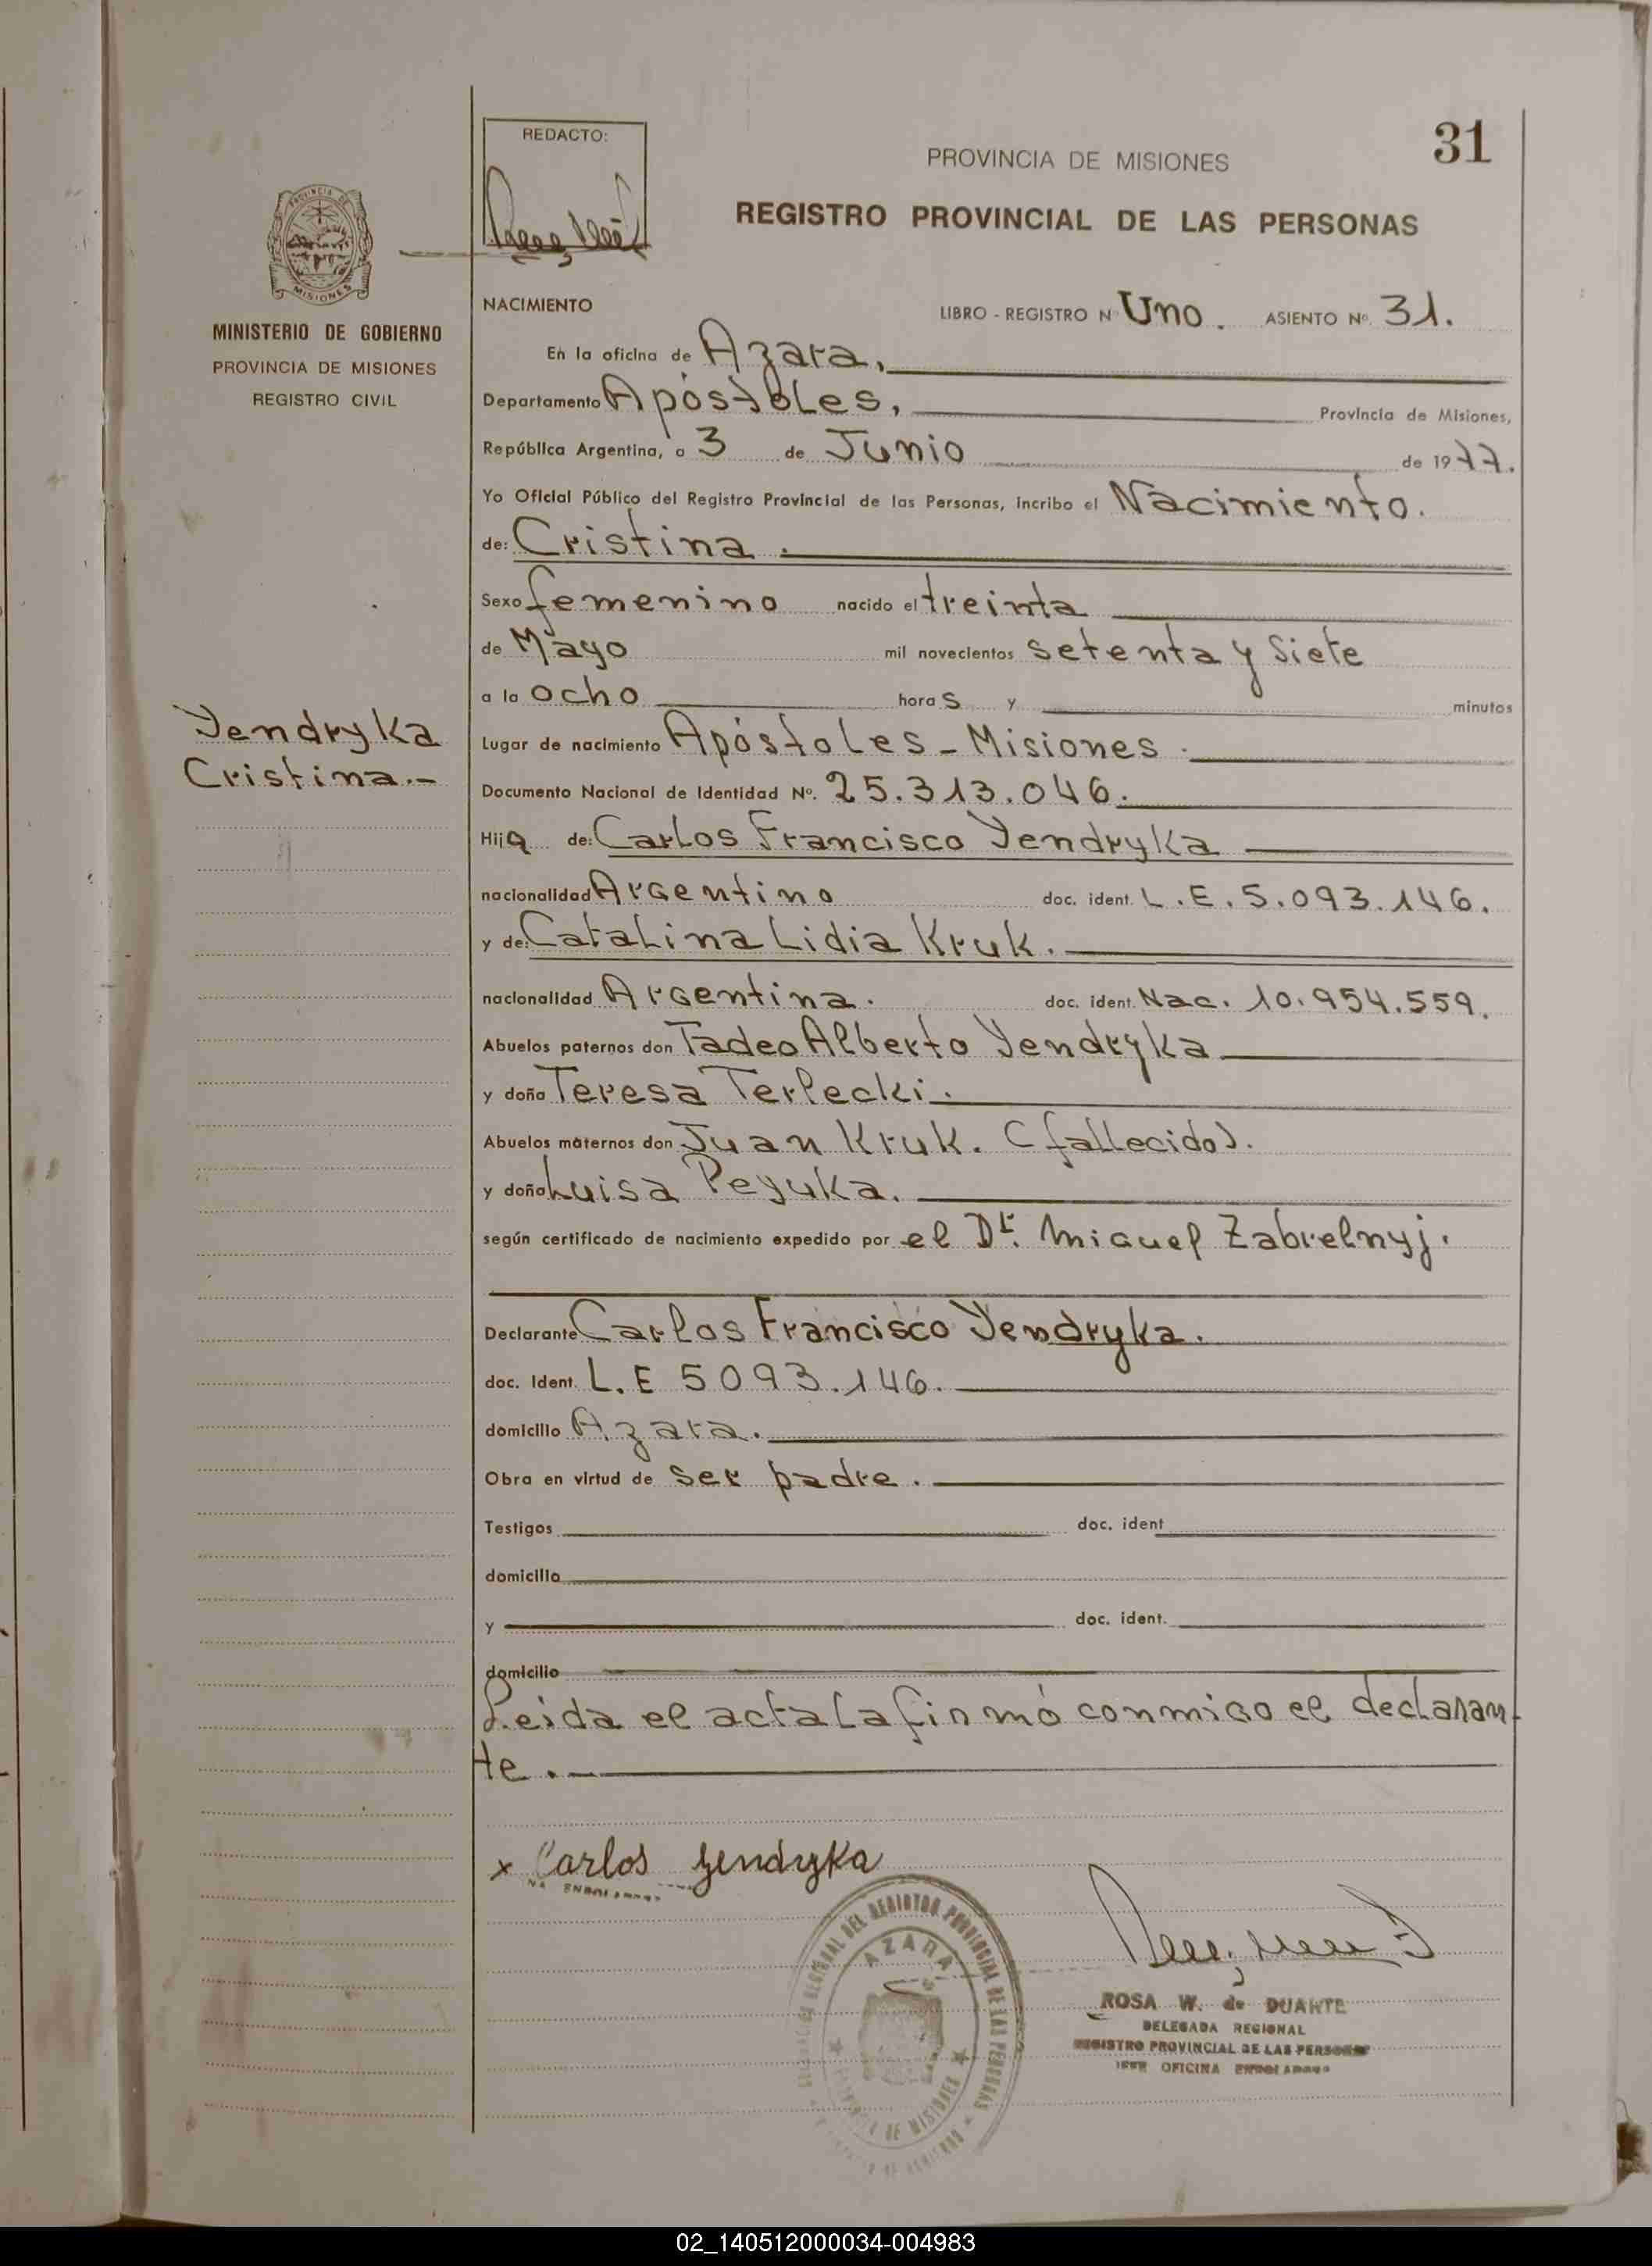 31
REDACTO:
PROVINCIA DE MISIONES
REGISTRO PROVINCIAL DE LAS PERSONAS
PROVINCIA DE
MISIONES
MINISTERIO DE GOBIERNO
PROVINCIA DE MISIONES
REGISTRO CIVIL
NACIMIENTO LIBRO - REGISTRO Nº Uno. ASIENTO Nº. 31.
En la oficina de Azara,
Departamento Apóstoles, Provincia de Misiones,
República Argentina, a 3 de Junio de 1977.
Yo Oficial Público del Registro Provincial de las Personas, incribo el Nacimiento.
de: Cristina.
Sexo femenino nacido el treinta
de Mayo mil novecientos setenta y siete
a la ocho horas y minutos
Yendryka
Cristina.-
Lugar de nacimiento Apóstoles - Misiones.
Documento Nacional de Identidad Nº. 25.313.046.
Hija de: Carlos Francisco Yendryka
nacionalidad Argentino doc. ident. L.E. 5.093.146.
y de: Catalina Lidia Kruk.
nacionalidad Argentina. doc. ident. Nac. 10.954.559.
Abuelos paternos don Tadeo Alberto Yendryka
y doña Teresa Terlecki.
Abuelos maternos don Juan Kruk. (fallecido).
y doña Luisa Peyuka.
según certificado de nacimiento expedido por el Dr. Miguel Zabrelnyj.
Declarante Carlos Francisco Yendryka.
doc. Ident. L.E 5093.146.
domicilio Azara.
Obra en virtud de ser padre.
Testigos doc. ident
domicilio
y doc. ident.
domicilio
Leida el acta la firmó conmigo el declaran
te.-
x Carlos Yendryka
DEL REGISTRO PROVINCIAL DE LAS PERSONAS
AZARA
PROVINCIA DE MISIONES
ROSA W. de DUARTE
DELEGADA REGIONAL
REGISTRO PROVINCIAL DE LAS PERSONAS
OFICINA
02_140512000034-004983